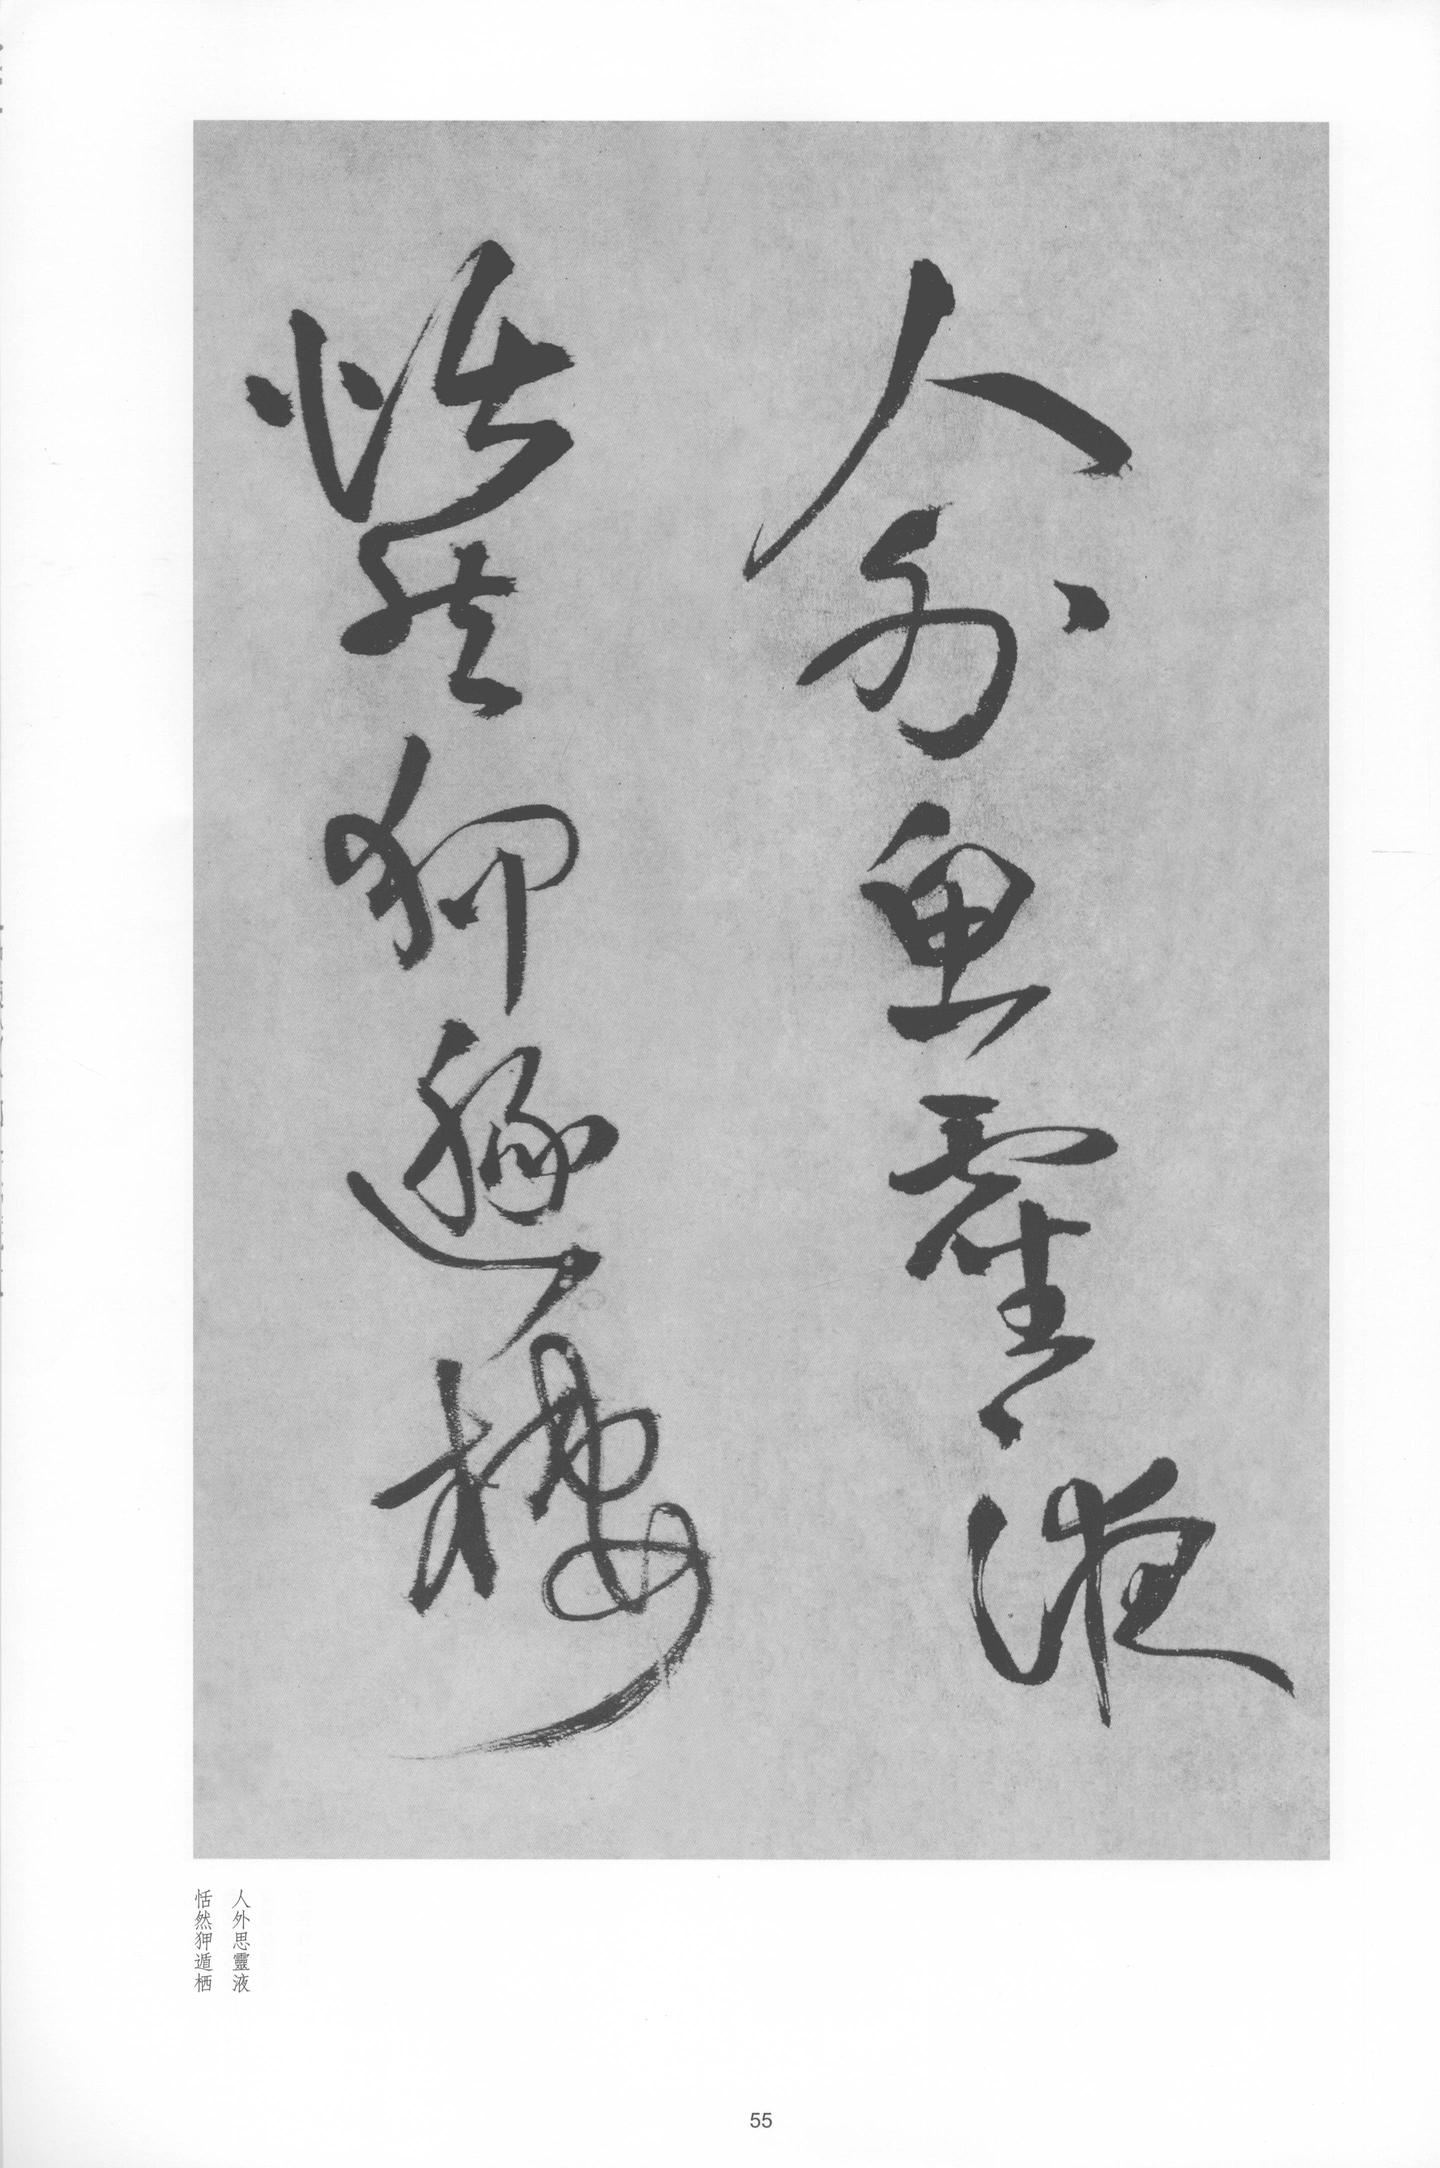 人外思靈液
恬然狎遁棲
人外思靈液
恬然狎遁栖
55